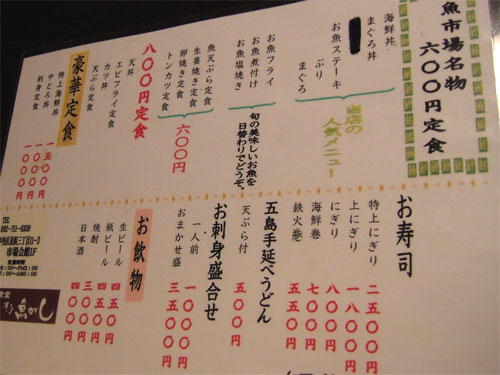 魚市場名物
六〇〇円定食
海鮮丼
まぐろ丼
お魚ステーキ
ぶり
まぐろ
当店の
人気メニュー
お魚フライ
お魚煮付け
お魚塩焼き
旬の美味しいお魚を
日替わりでどうぞ。
魚天ぷら定食
生姜焼き定食
卵焼き定食
トンカツ定食
六〇〇円
八〇〇円定食
天丼
エビフライ定食
天ぷら定食
豪華定食
特上海鮮丼
中とろ丼
刺身定食
一五〇〇円
一〇〇〇円
一〇〇〇円
お寿司
特上にぎり 二五〇〇円
上にぎり 一八〇〇円
にぎり 一〇〇〇円
海鮮巻 八〇〇円
鉄火巻 七五〇円
五島手延べうどん 五五〇円
天ぷら付 五〇〇円
お刺身盛合せ
一人前 一〇〇〇円
おまかせ盛 三五〇〇円
お飲物
生ビール 四五〇円
瓶ビール 四五〇円
焼酎 三〇〇円
日本酒 四〇〇円
TEL
市場会館1F
営業時間
魚がし